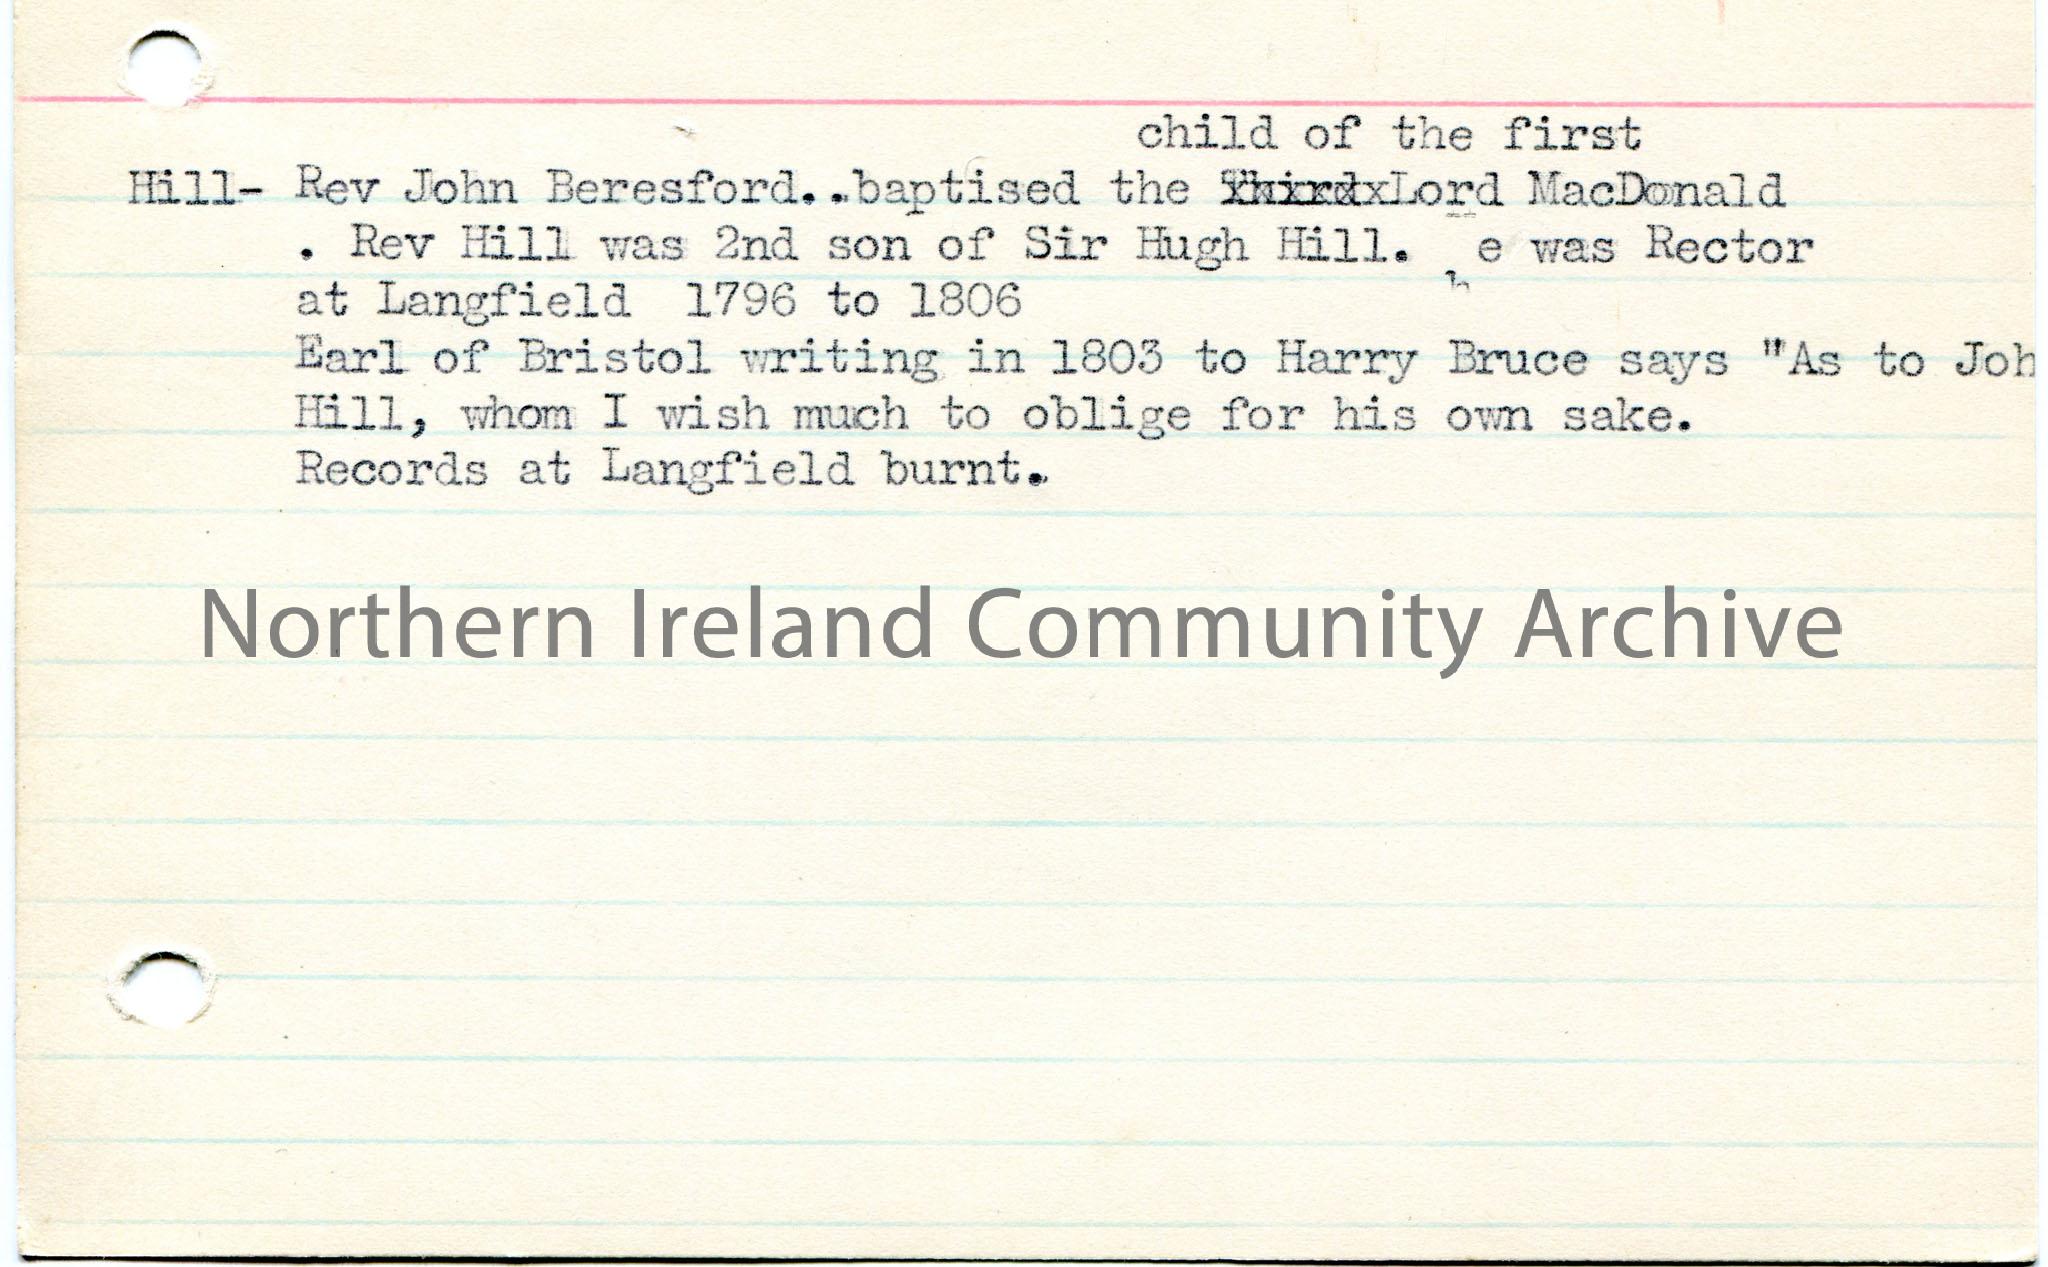 child of the first
Hill- Rev John Beresford..baptised the Lord MacDonald
. Rev Hill was 2nd son of Sir Hugh Hill. he was Rector
at Langfield 1796 to 1806
Earl of Bristol writing in 1803 to Harry Bruce says "As to Joh
Hill, whom I wish much to oblige for his own sake.
Records at Langfield burnt.
Northern Ireland Community Archive